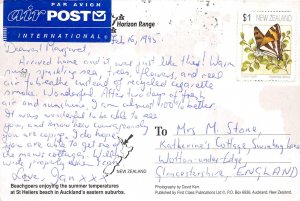 PAR AVION
air POST
INTERNATIONAL
Horizon Range
Feb 16, 1995.
NEW ZEALAND
$1
Dear Margaret,
Arrived home and it was just like this! Warm
sun, sparkling sea, trees, flowers, and real
air to breathe instead of recycled cigarette
smoke. Wonderful. After two days of fresh
air and sunshine, I am almost 100% better.
It was wonderful to be able to see
you, and know how courageously
you are coping. I do hope
you are able to get one of
the manor cottages.
Love, Jan xxx
NEW ZEALAND
Beachgoers enjoying the summer temperatures
at St Heliers beach in Auckland's eastern suburbs.
To
Mrs M. Stone,
Katherine's Cottage,
Wotton-under-Edge,
Gloucestershire,
ENGLAND
Photography by David Kerr
Published by First Class Publications Ltd ©, P.O. Box 6936, Auckland, New Zealand.